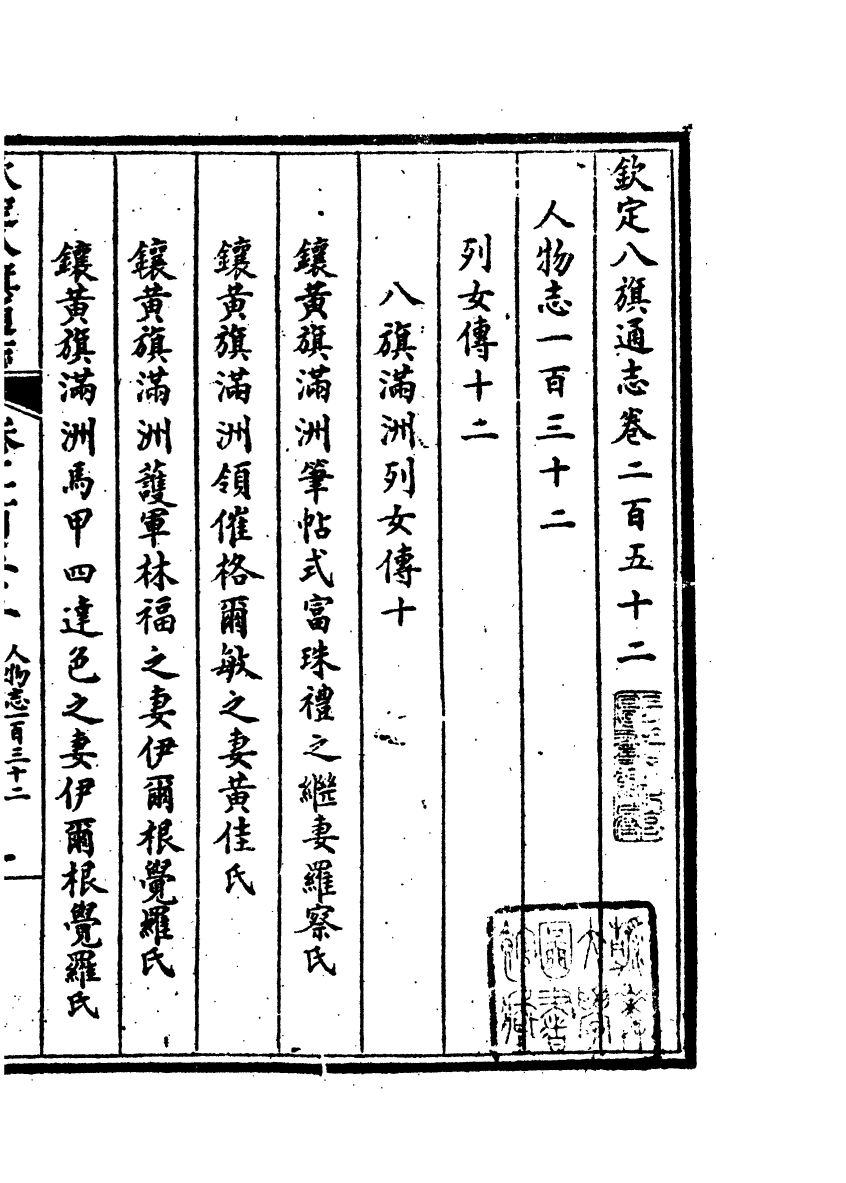 欽定八旗通志卷二百五十二
人物志一百三十二
列女傳十二
八旗滿洲列女傳十
鑲黃旗滿洲筆帖式富珠禮之繼妻羅察氏
鑲黃旗滿洲領催格爾敏之妻黃佳氏
鑲黃旗滿洲護軍林福之妻伊爾根覺羅氏
鑲黃旗滿洲馬甲四達色之妻伊爾根覺羅氏
人物志一百三十二
一